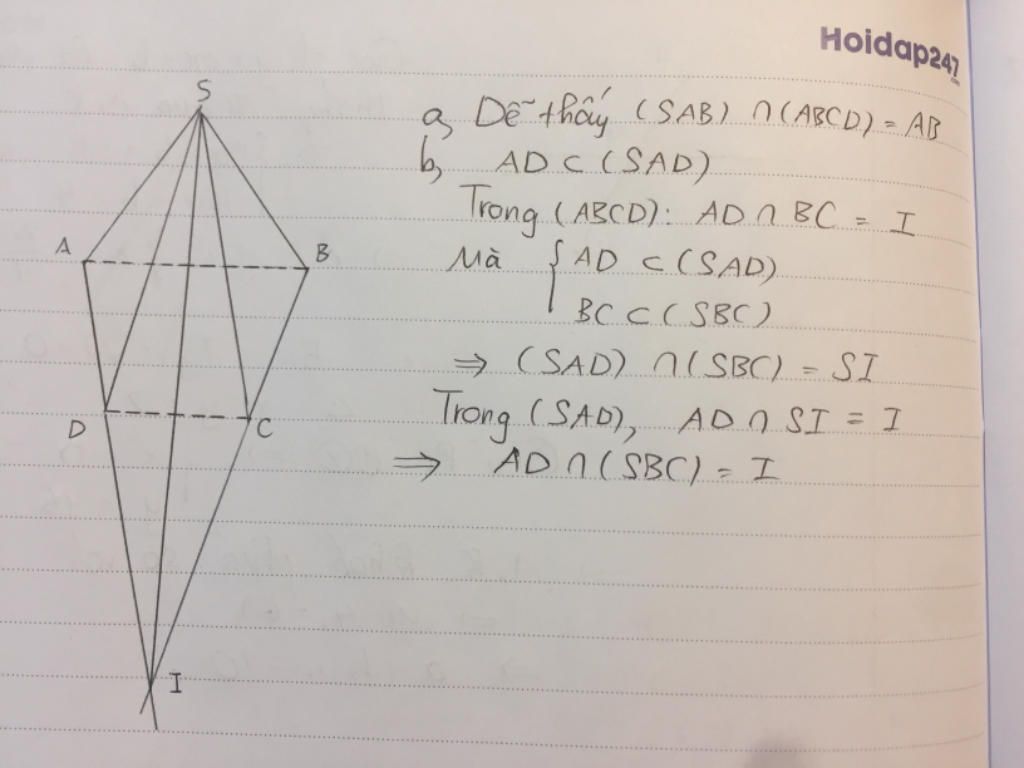 Hoidap247
a, Dễ thấy (SAB) ∩ (ABCD) = AB
b, AD ⊂ (SAD)
Trong (ABCD): AD ∩ BC = I
Mà { AD ⊂ (SAD)
BC ⊂ (SBC)
⇒ (SAD) ∩ (SBC) = SI
Trong (SAD), AD ∩ SI = I
⇒ AD ∩ (SBC) = I
S
A
B
D
C
I